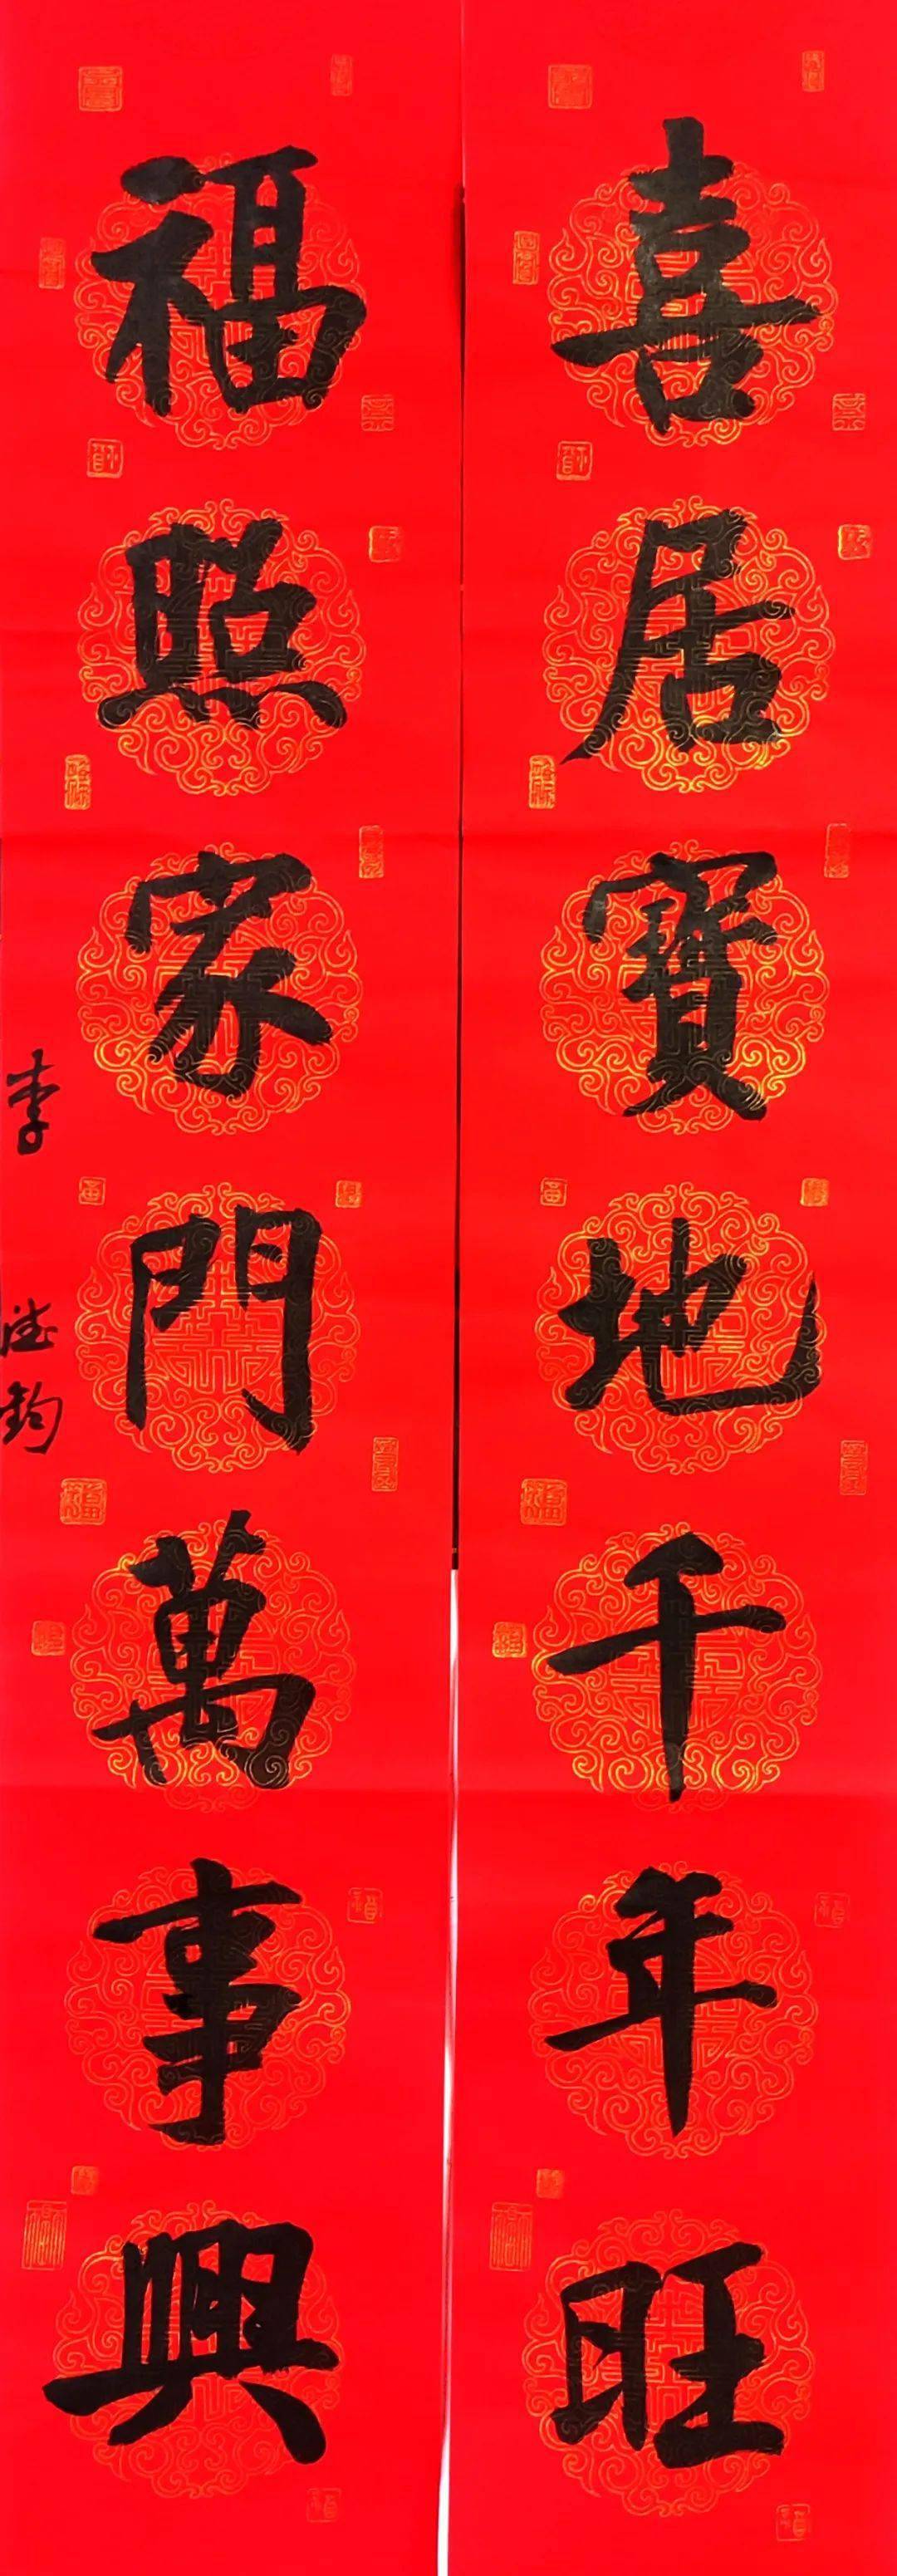 喜居寶地千年旺
福照家門萬事興
李德鈞